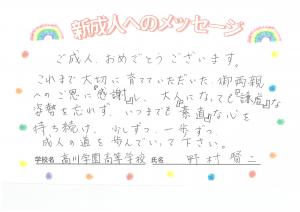 新成人へのメッセージ
ご成人、おめでとうございます。
これまで大切に育てていただいた御両親
へのご恩に『感謝』し、大人になっても『謙虚』な
姿勢を忘れず、いつまでも『素直』な心を
持ち続け、少しずつ、一歩ずつ、
成人の道を歩んでいって下さい。
学校名 高川学園高等学校 氏名 野村 賢二